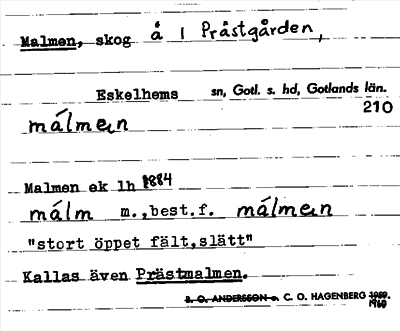 Malmen, skog å 1 Prästgården,
Eskelhems sn, Gotl. s. hd, Gotlands län.
210
målmen
Malmen ek lh 1884
målm m.,best.f. målmen
"stort öppet fält,slätt"
Kallas även Prästmalmen.
B. O. ANDERSSON o. C. O. HAGENBERG 1959.
1960